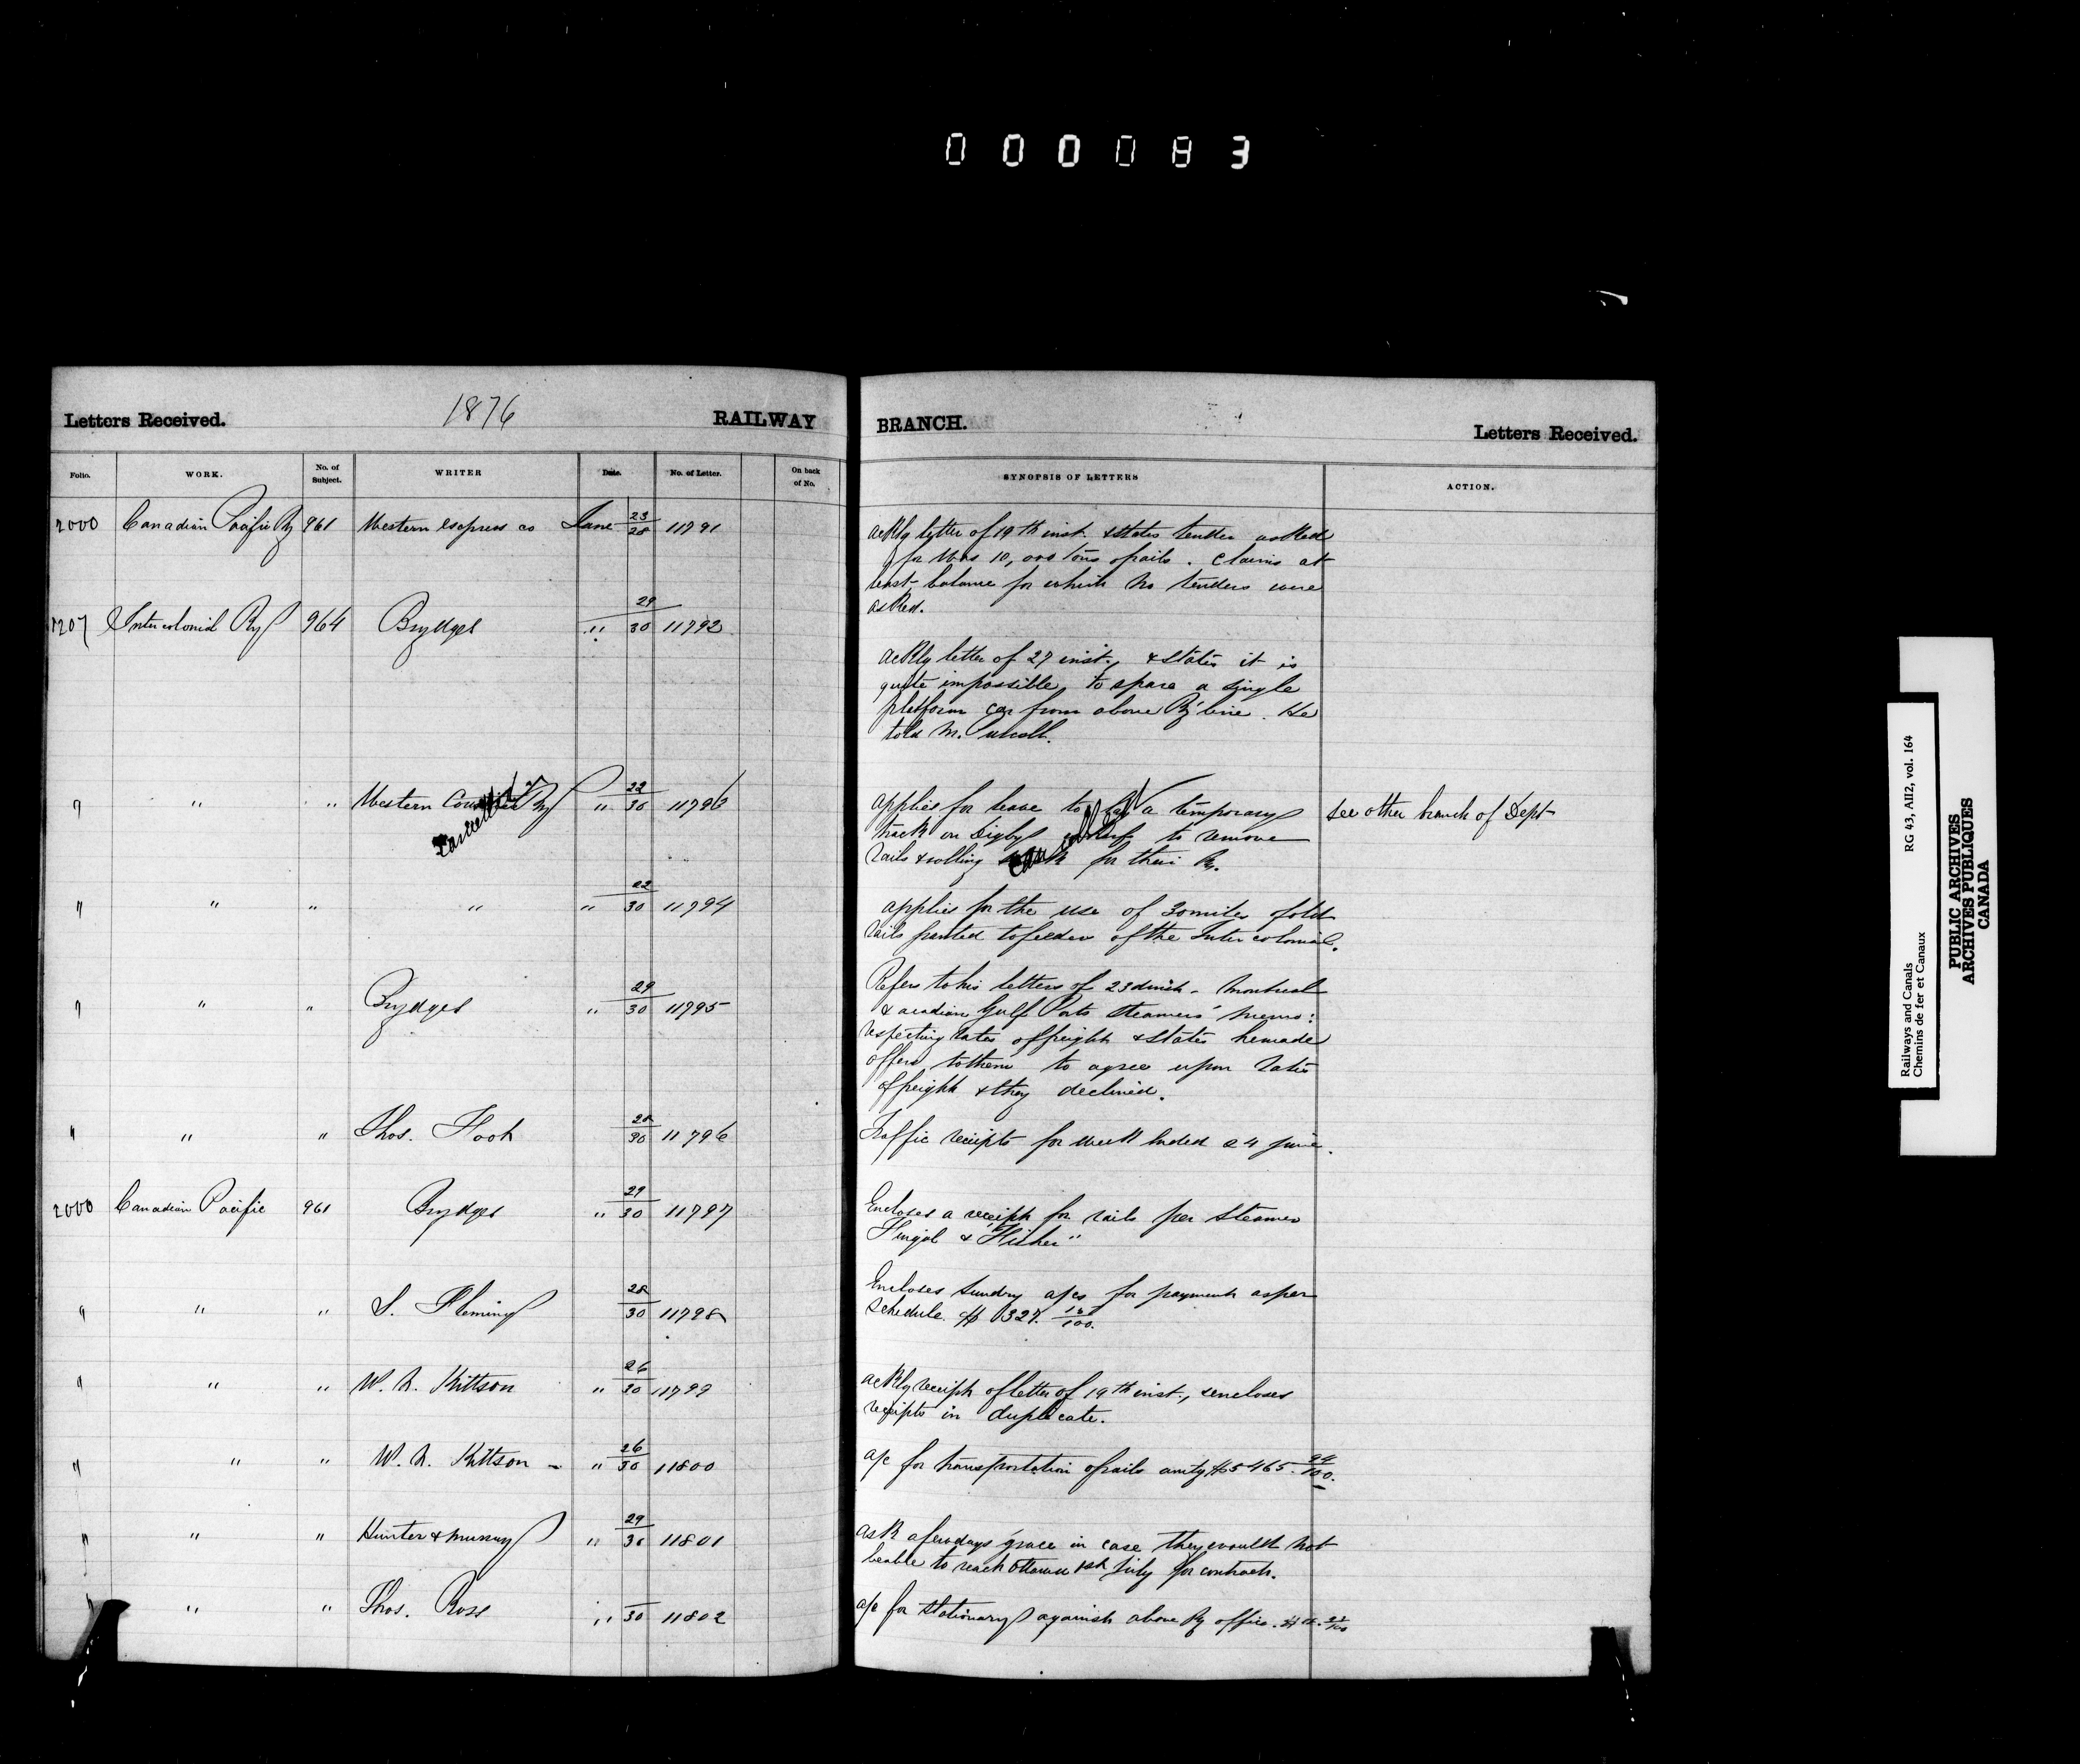 000083
Letters Received. 1876 RAILWAY BRANCH. Letters Received.
Folio. WORK. No. of Subject. WRITER Date. No. of Letter. On back of No. SYNOPSIS OF LETTERS ACTION.
2000 Canadian Pacific Ry 961 Western Express co June 23/28 11791
ackly letter of 19th inst. & states tender asked
for was 10,000 tons of rails. Claims at
least balance for which no tenders were
asked.
1207 Intercolonial Ry 964 Brydges " 29/30 11792
ackly letter of 27 inst., & states it is
quite impossible to spare a single
platform car from above Ry line. He
told M.
" " " Western Counties Ry " 22/30 11793
Cancelled
applies for leave to lay a temporary see other branch of Dept
track on Digby wharf to remove
rails & rolling stock for their Ry.
Cancelled
" " " " " 22/30 11794
applies for the use of 30 miles of old
rails granted to feeders of the Intercolonial.
" " " Brydges " 29/30 11795
Refers to his letters of 23d inst - Montreal
& acadian Gulf Ports Steamers' memo:
respecting rates of freight & states he made
offers to them to agree upon rates
of freight & they declined.
" " " Thos. Foot 28/30 11796
Traffic receipts for week ended 24 June.
2000 Canadian Pacific 961 Brydges " 29/30 11797
Encloses a receipt for rails per Steamer
Fingal & "Fisher"
" " " S. Fleming 28/30 11798
Encloses sundry a/cs for payment as per
schedule. $ 1327.
" " " W. N. Kittson " 26/30 11799
ackly receipt of letter of 19th inst., & encloses
receipts in duplicate.
" " " W. N. Kittson - " 26/30 11800
a/c for transportation of rails amtg $5465. 94/100.
" " " Hunter & Murray " 29/30 11801
ask a few days grace in case they would not
be able to reach Ottawa 1st July for contract.
" " " Thos. Ross " 30 11802
a/c for stationary against above Ry office.
Railways and Canals
Chemins de fer et Canaux
RG 43, AII2, vol. 164
PUBLIC ARCHIVES
ARCHIVES PUBLIQUES
CANADA